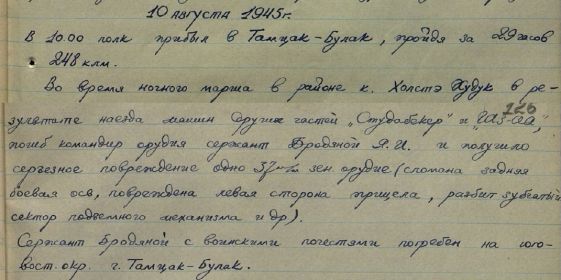 10 августа 1945г.
В 10.00 полк прибыл в Тамцак-Булак, пройдя за 29 часов
248 клм.
Во время ночного марша в районе к. Холстэ Худук в ре-
126
зультате наезда машин других частей „Студобекер" и „ГАЗ-АА",
погиб командир орудия сержант Бродяной Я.И. и получило
серьезное повреждение одно 37 м/м зен. орудие (сломана задняя
боевая ось, повреждена левая сторона прицела, разбит зубчатый
сектор подъемного механизма и др).
Сержант Бродяной с воинскими почестями погребен на юго-
вост. окр. г. Тамцак-Булак.